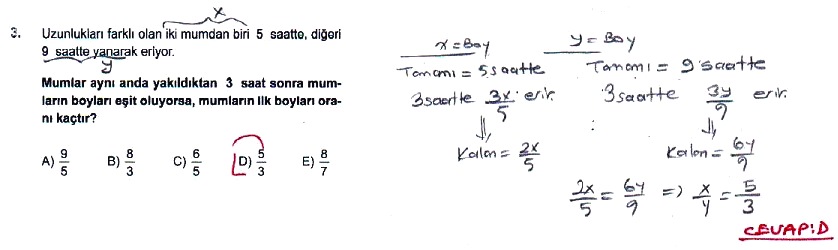 x
3. Uzunlukları farklı olan iki mumdan biri 5 saatte, diğeri
9 saatte yanarak eriyor.
y
Mumlar aynı anda yakıldıktan 3 saat sonra mum-
ların boyları eşit oluyorsa, mumların ilk boyları ora-
nı kaçtır?
A) 9/5 B) 8/3 C) 6/5 D) 5/3 E) 8/7
x = Boy
Tamamı = 5 saatte
3 saatte 3x/5 erir.
⇓
Kalan = 2x/5
y = Boy
Tamamı = 9 saatte
3 saatte 3y/9 erir.
⇓
Kalan = 6y/9
2x/5 = 6y/9 => x/y = 5/3
CEVAP:D